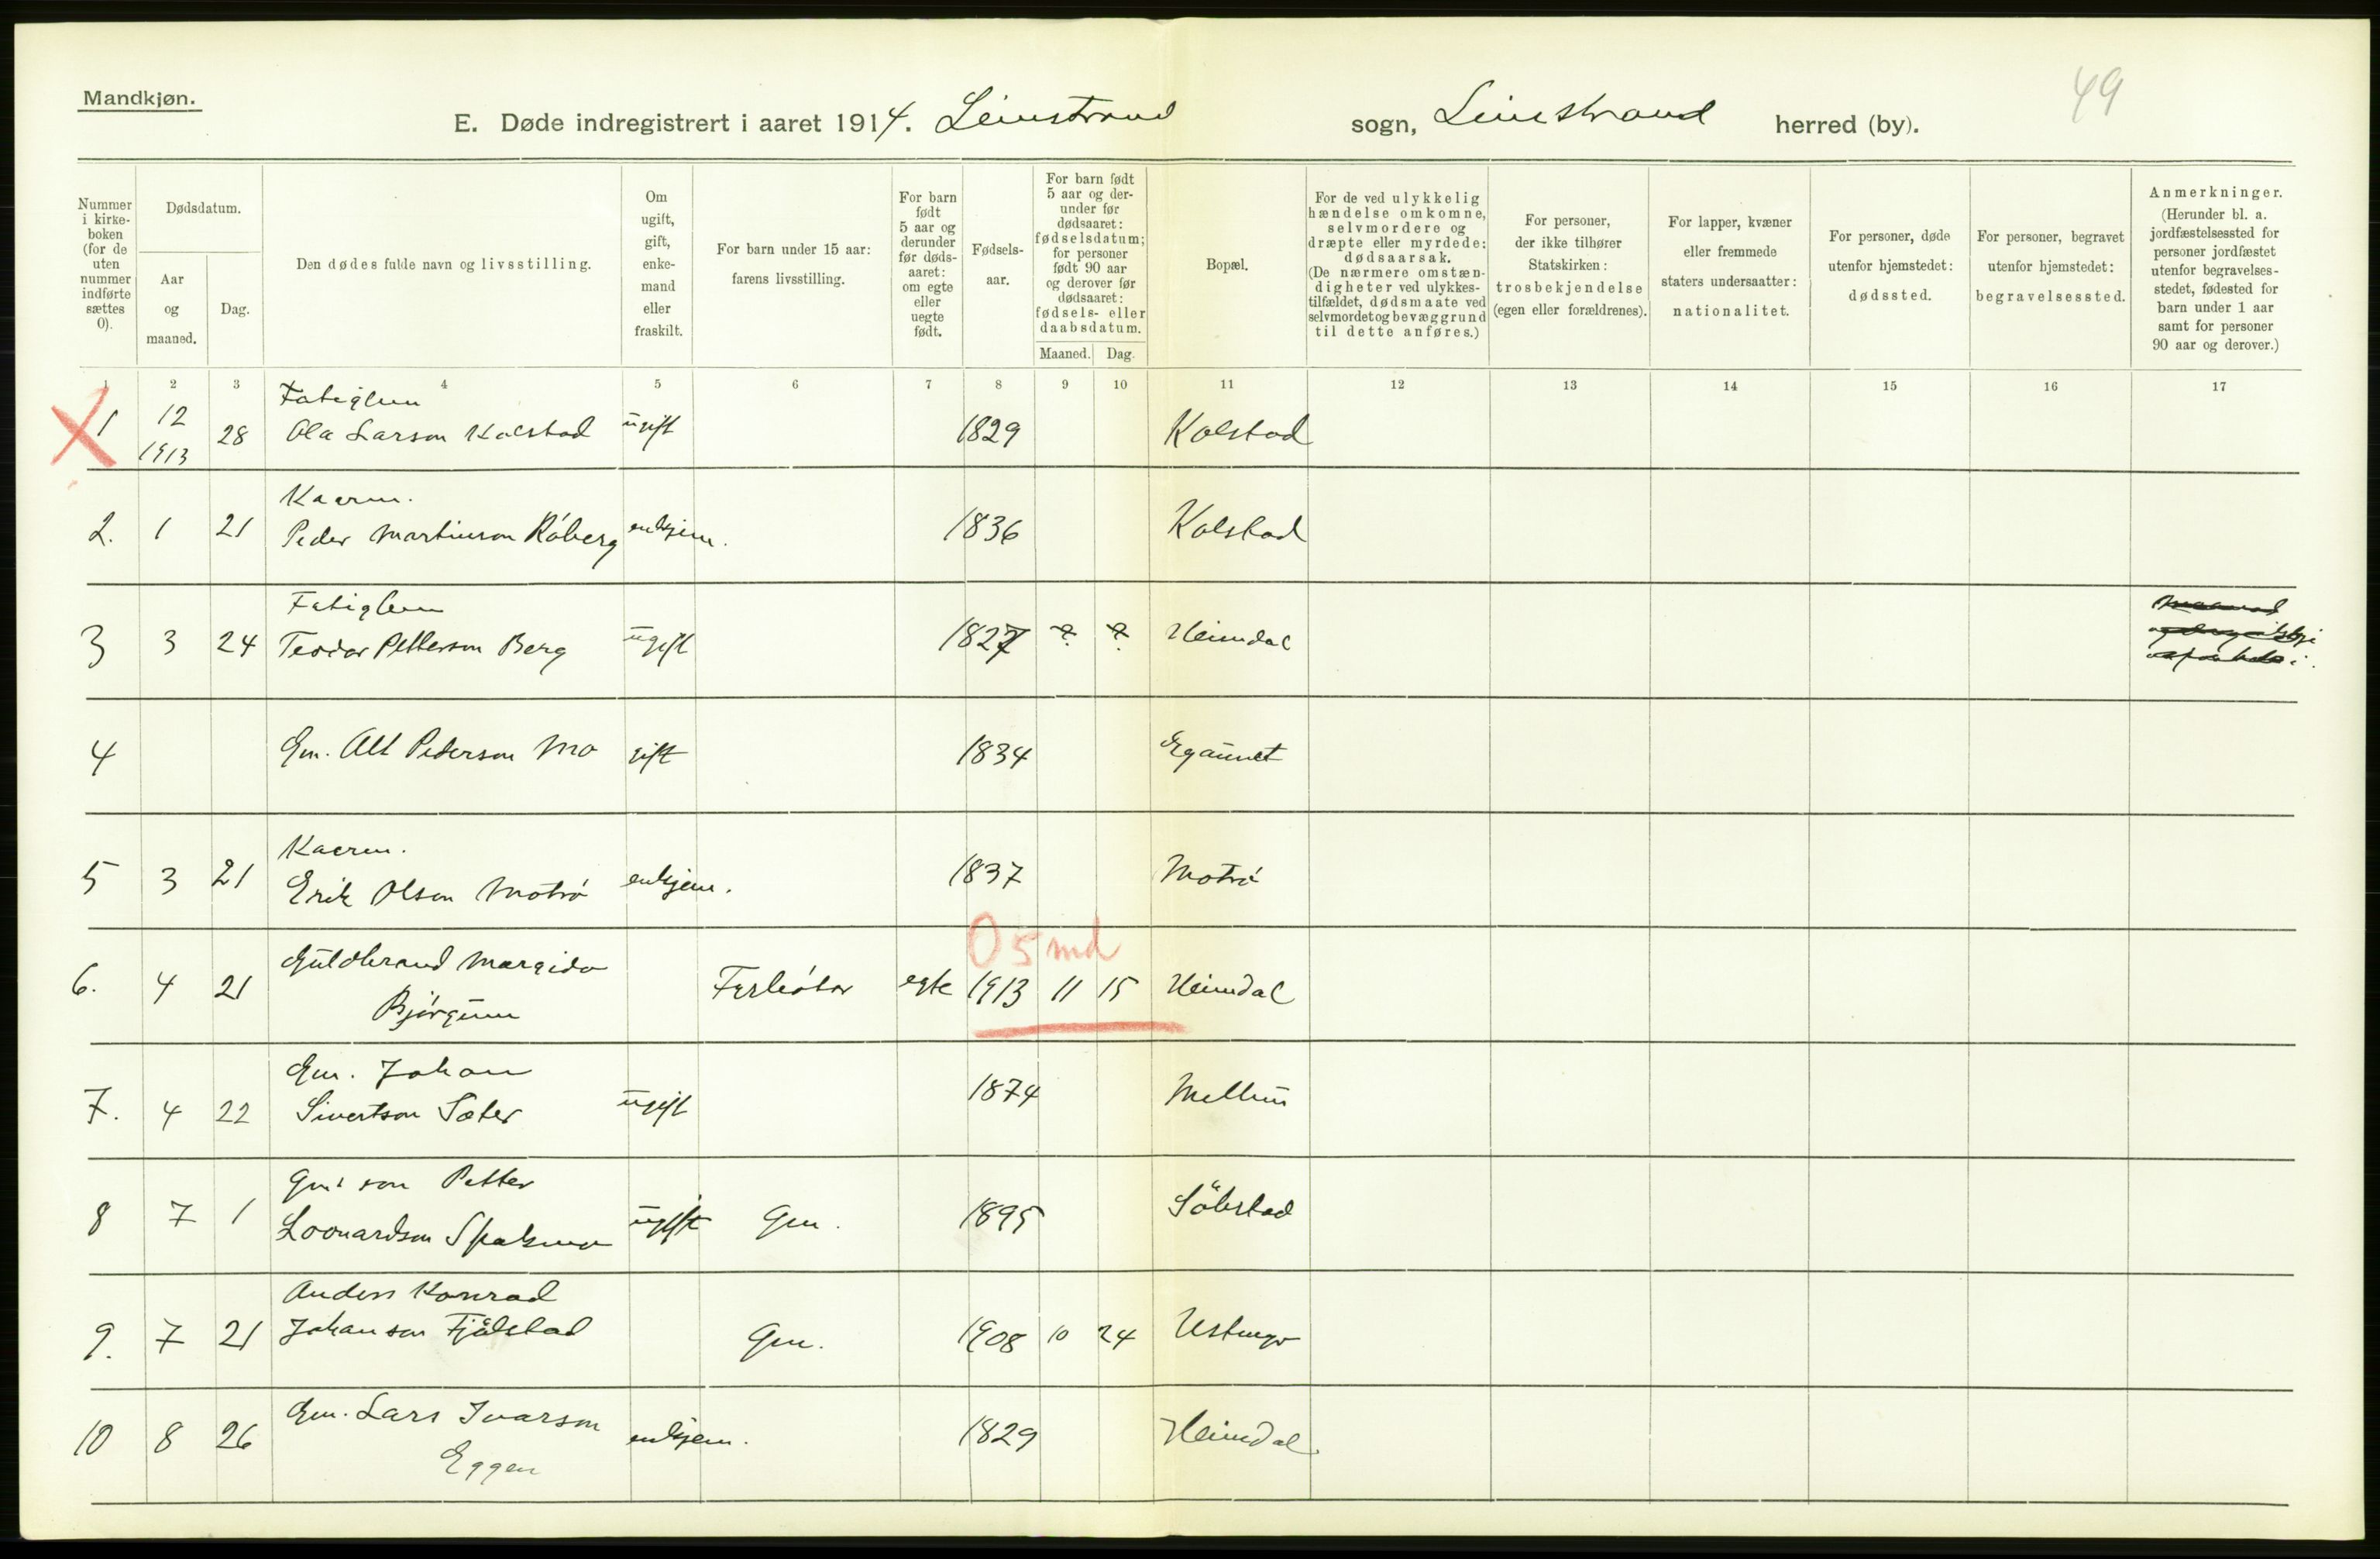 Mandkjøn.
49
E. Døde indregistrert i aaret 1914. Leinstrand sogn, Leinstrand herred (by).
Nummer i kirkeboken (for de uten nummer indførte sættes 0).
Dødsdatum.
Aar og maaned.
Dag.
Den dødes fulde navn og livsstilling.
Om ugift, gift, enkemand eller fraskilt.
For barn under 15 aar: farens livsstilling.
For barn født 5 aar og derunder før dødsaaret: om egte eller uegte født.
Fødselsaar.
For barn født 5 aar og derunder før dødsaaret: fødselsdatum; for personer født 90 aar og derover før dødsaaret: fødsels- eller daabsdatum.
Maaned. Dag.
Bopæl.
For de ved ulykkelig hændelse omkomne, selvmordere og dræpte eller myrdede: dødsaarsak. (De nærmere omstændigheter ved ulykkestilfældet, dødsmaate ved selvmordet og bevæggrund til dette anføres.)
For personer, der ikke tilhører Statskirken: trosbekjendelse (egen eller forældrenes).
For lapper, kvæner eller fremmede staters undersaatter: nationalitet.
For personer, døde utenfor hjemstedet: dødssted.
For personer, begravet utenfor hjemstedet: begravelsessted.
Anmerkninger. (Herunder bl. a. jordfæstelsessted for personer jordfæstet utenfor begravelsesstedet, fødested for barn under 1 aar samt for personer 90 aar og derover.)
1 2 3 4 5 6 7 8 9 10 11 12 13 14 15 16 17
Fatiglem
1 12 1913 28 Ola Larson Kolstad ugift 1829 Kolstad
Kaarm.
2. 1 21 Peder Martinson Råberg enkjem. 1836 Kolstad
Fatiglem
3 3 24 Teodor Petterson Berg ugift 1827 ? ? Heimdal
4 Gm. Alt Pederson Mo gift 1834 Egaunet
Kaarm.
5 3 21 Erik Olson Motrö enkjem. 1837 Motrö
0 5 md
Guldbrand Margido
6. 4 21 Bjørgum egte 1913 11 15 Heimdal
Gm. Johan
7. 4 22 Sivertson Sæter ugift 1874 Mellum
Gm. son Petter
8 7 1 Leonardson ugift Gm. 1895 Söbstad
Anders Konrad
9. 7 21 Johanson Fjølstad Gm. 1908 10 24
10 8 26 Gm. Lars Ivarson enkjem. 1829 Heimdal
Eggen